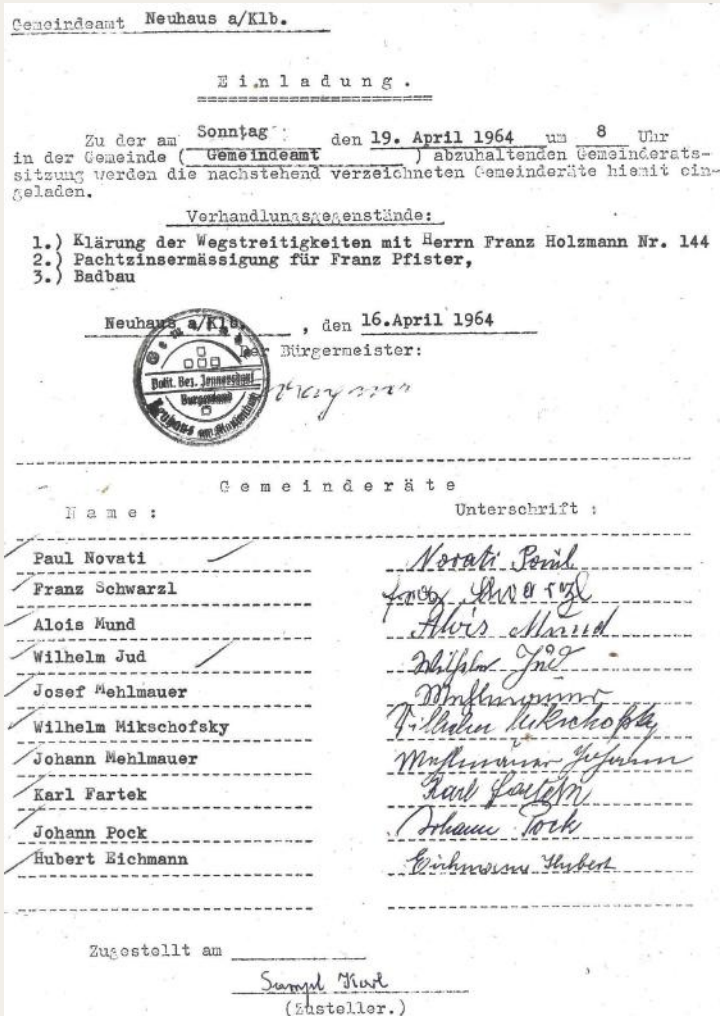 Gemeindeamt Neuhaus a/Klb.
Einladung.
Zu der am Sonntag den 19. April 1964 um 8 Uhr
in der Gemeinde ( Gemeindeamt ) abzuhaltenden Gemeinderats-
sitzung werden die nachstehend verzeichneten Gemeinderäte hiemit ein-
geladen.
Verhandlungsgegenstände:
1.) Klärung der Wegstreitigkeiten mit Herrn Franz Holzmann Nr. 144
2.) Pachtzinsermässigung für Franz Pfister,
3.) Badbau
Neuhaus a/Klb. , den 16.April 1964
Der Bürgermeister:
Polit. Bez. Jennersdorf
Burgenland
Neuhaus am Klausenbach
Gemeinderäte
Name: Unterschrift :
Paul Novati Novati Paul
Franz Schwarzl Franz Schwarzl
Alois Mund Alois Mund
Wilhelm Jud Wilhelm Jud
Josef Mehlmauer Mehlmauer
Wilhelm Mikschofsky Wilhelm Mikschofsky
Johann Mehlmauer Mehlmauer Johann
Karl Fartek Karl Fartek
Johann Pock Johann Pock
Hubert Eichmann Eichmann Hubert
Zugestellt am
Sampl Karl
(Zusteller.)